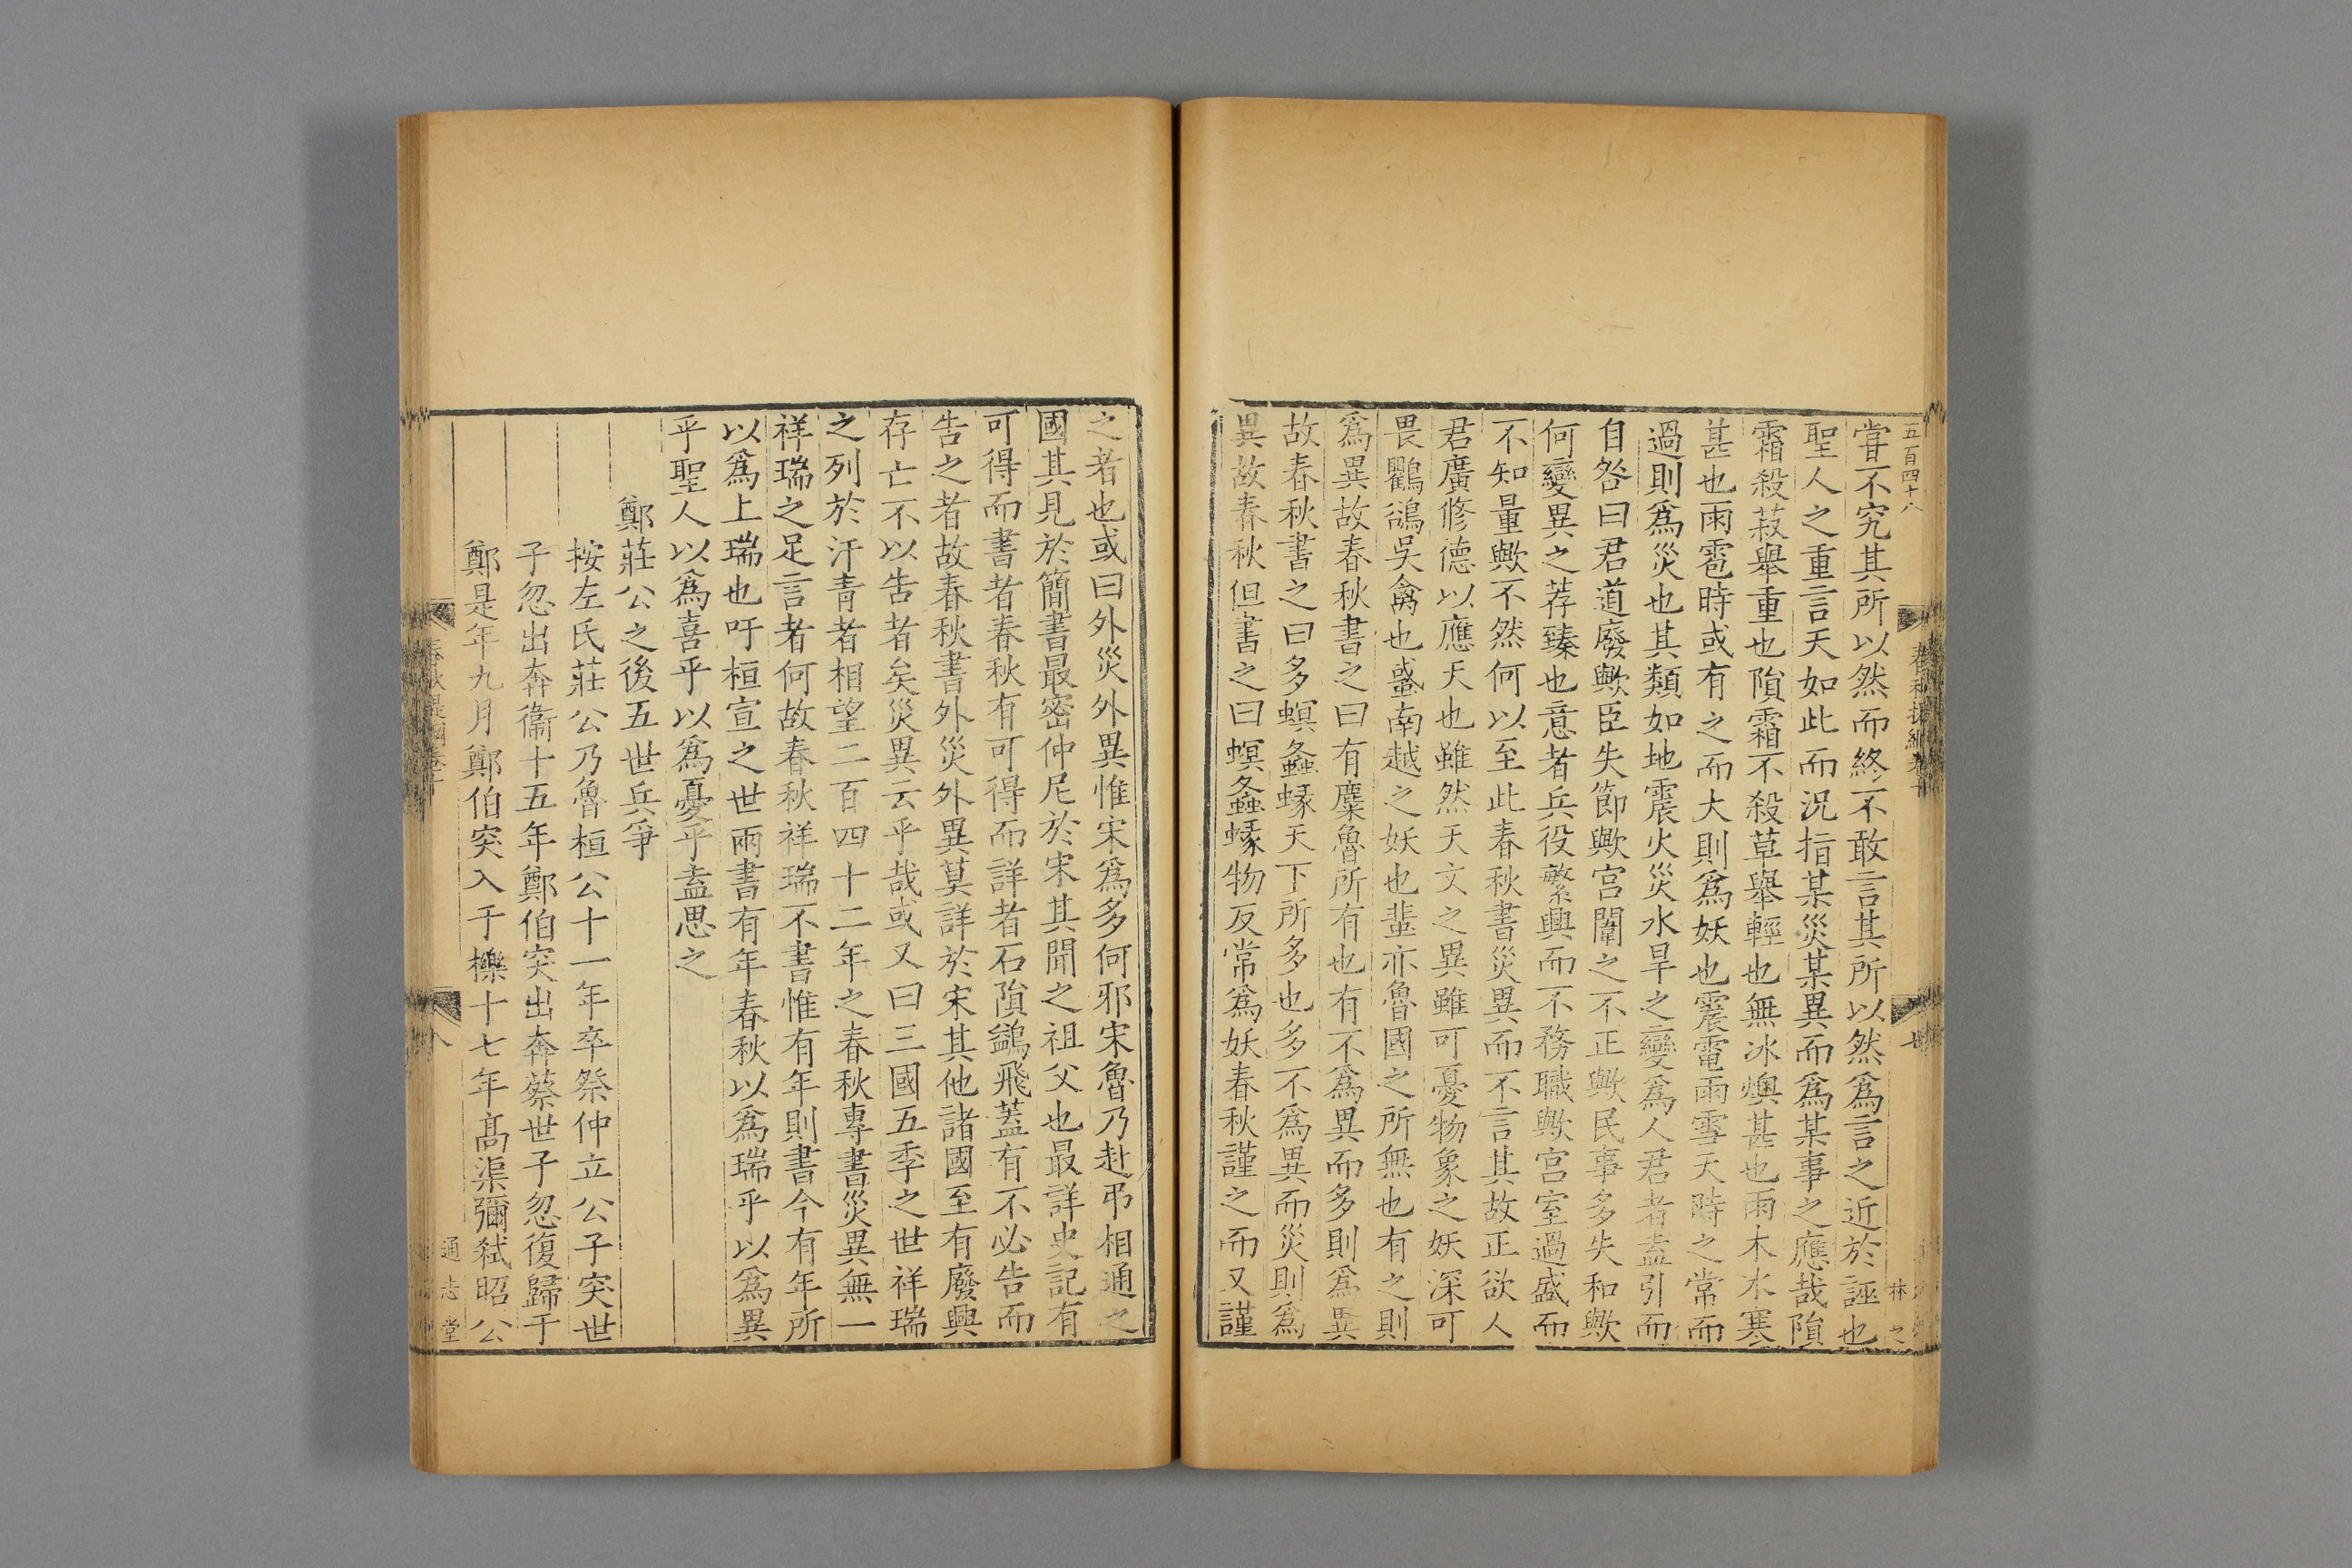 五百四十八
甞不究其所以然而終不敢言其所以然爲言之近於誣也
聖人之重言天如此而况指某災某異而爲某事之應哉隕
霜殺菽舉重也隕霜不殺草舉輕也無冰燠甚也雨木冰寒
甚也雨雹時或有之而大則爲妖也震電雨雪天時之常而
過則爲災也其類如地震火災水旱之變爲人君者盍引而
自咎曰君道廢歟臣失節歟宫闈之不正歟民事多失和歟
何變異之荐臻也意者兵役繁興而不務職歟宫室過盛而
不知量歟不然何以至此春秋書災異而不言其故正欲人
君廣修德以應天也雖然天文之異雖可憂物象之妖深可
畏鸜鵒吳禽也蜮南越之妖也蜚亦魯國之所無也有之則
爲異故春秋書之曰有麋魯所有也有不爲異而多則爲異
故春秋書之曰多螟螽蝝天下所多也多不爲異而災則爲
異故春秋但書之曰螟螽蝝物反常爲妖春秋謹之而又謹
之者也或曰外災外異惟宋爲多何邪宋魯乃赴弔相通之
國其見於簡書最密仲尼於宋其聞之祖父也最詳史記有
可得而書者春秋有可得而詳者石隕鷁飛蓋有不必告而
告之者故春秋書外災外異莫詳於宋其他諸國至有廢興
存亡不以告者矣災異云乎哉或又曰三國五季之世祥瑞
之列於汗青者相望二百四十二年之春秋專書災異無一
祥瑞之足言者何故春秋祥瑞不書惟有年則書今有年所
以爲上瑞也吁桓宣之世兩書有年春秋以爲瑞乎以爲異
乎聖人以爲喜乎以爲憂乎盍思之
鄭莊公之後五世兵爭
按左氏莊公乃魯桓公十一年卒祭仲立公子突世
子忽出奔衞十五年鄭伯突出奔蔡世子忽復歸于
鄭是年九月鄭伯突入于櫟十七年高渠彌弒昭公
八
通志堂